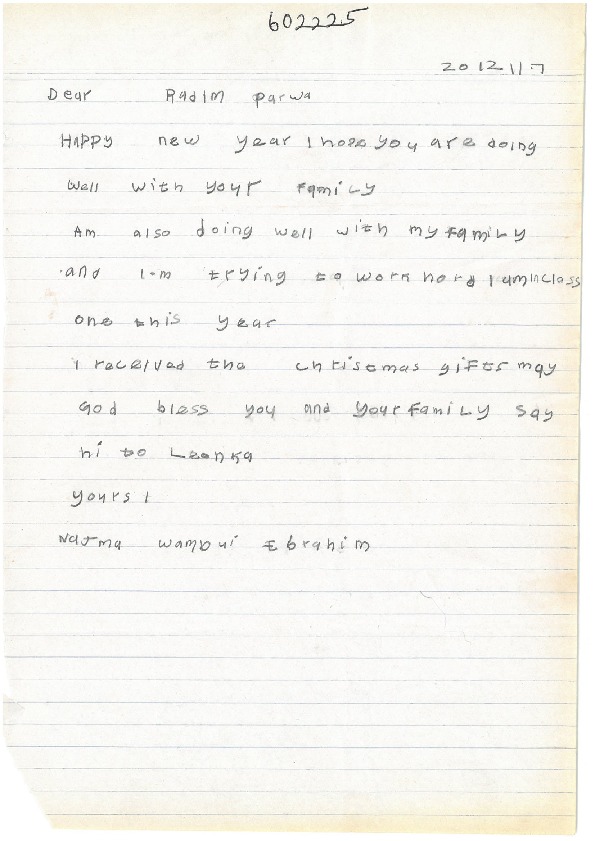 602225
2012 1 17
Dear Radim parwa
HAPPY new year I hope you are doing
Well with your family
Am also doing well with my family
and I-m trying to work hard I am in class
one this year
I received the christmas gifts may
God bless you and your family say
hi to Leonka
yours 1
Najma wambui Ebrahim